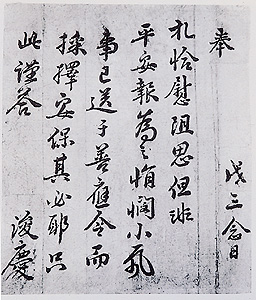 奉
戊三念日
札恰慰阻思但非
平安報為之悁憫小
事已送于善應令而
揀擇安保其必耶只
此謹答 浚慶